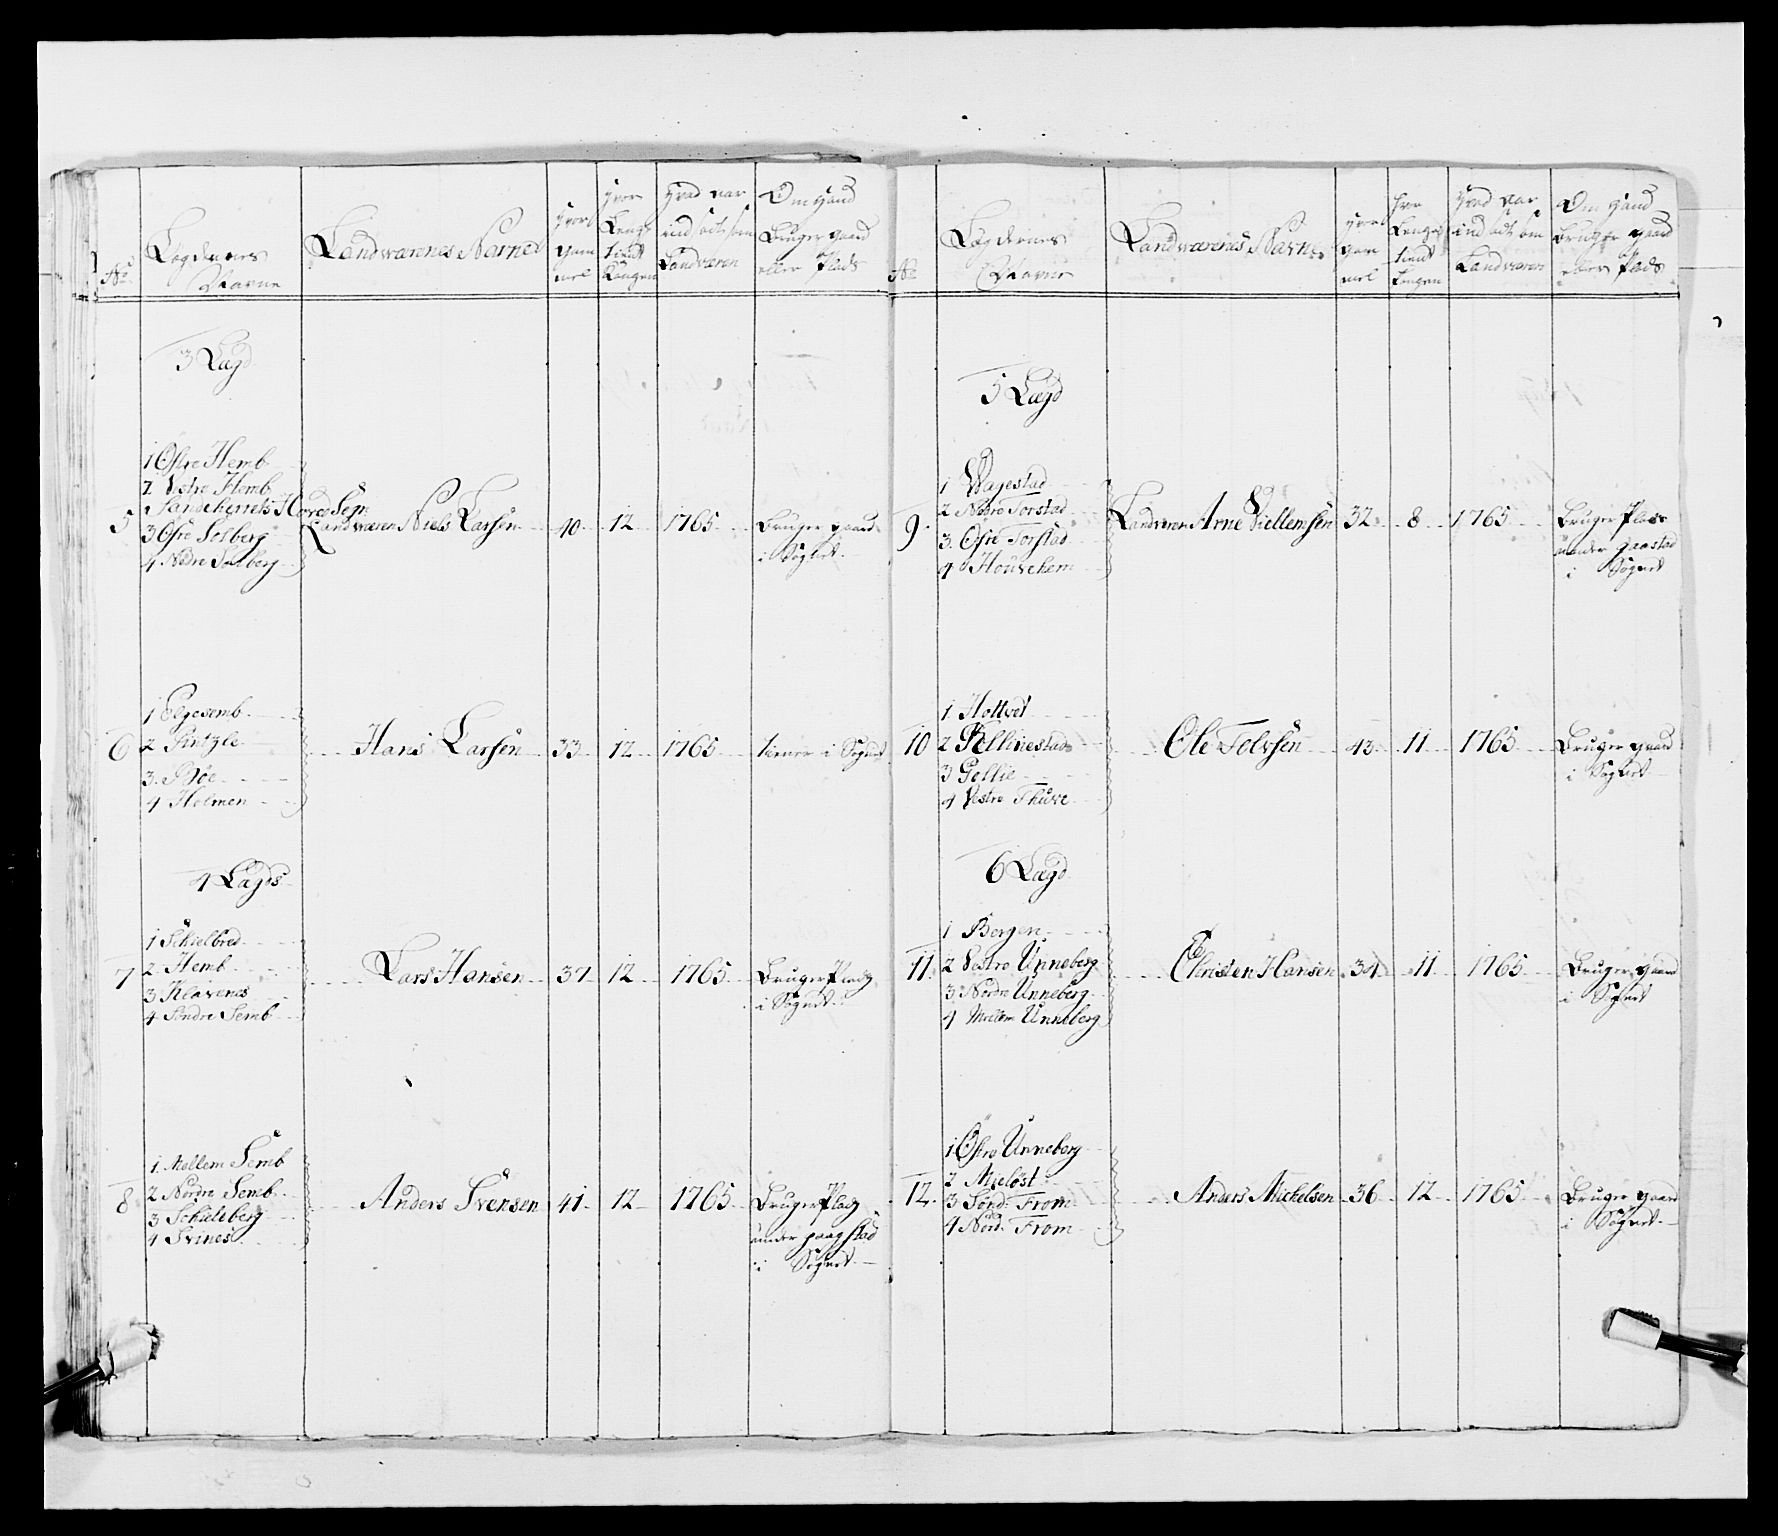 No
Lægdernes
Navne
Landværenes Navne
Hvor
gam
mel
Hvor
Lenge
tient
Kongen
Hvad aar
indsadt som
Landværn
Om Hand
Bruger gaard
eller Plads
3 Lægd
1 Østre Hemb
2 Vestre Hemb
Sandeherrets Hoved Sogn
3 Øfre Solberg
4 Nedre Solberg
5
Landværn Niels Larsen
40
12
1765
Bruger gaard
i Sognet
1 Elgesemb
2 Pintzle
3 Bøe
4 Holmen
6
Hans Larsen
33
12
1765
tiener i Sognet
4 Lægds
1 Schielbred
2 Hemb
3 Klavenes
4 Søndre Semb
7
Lars Hansen
37
12
1765
Bruger Plads
i Sognet
1 Mellem Semb
2 Nordre Semb
3 Schieleberg
4 Svines
8
Anders Svensen
41
12
1765
Bruger Plads
under
i Sognet
No
Lægdernes
Navne
Landværenes Navne
Hvor
gam
mel
Hvor
Lenge
tient
Kongen
Hvad aar
indsadt som
Landværn
Om Hand
Bruger gaard
eller Plads
5 Lægd
1 Vagestad
2 Nedre Torstad
3 Øfre Torstad
4 Houvehem
9
Landværn Arne Villemsen
32
8
1765
Bruger Plads
under
i Sognet
1 Hottvet
2 Pellinestad
3 Gollie
4 Vestre Thuve
10
Ole Tolvsen
43
11
1765
Bruger gaard
i Sognet
6 Lægd
1 Bergen
2 Vestre Unneberg
3 Nordre Unneberg
4 Mellem Unneberg
11
Christen Hansen
34
11
1765
Bruger gaard
i Sognet
1 Østre Unneberg
2 Mieløst
3 Sønd: From
4 Nord: From
12
Anders Mickelsen
36
12
1765
Bruger gaard
i Sognet